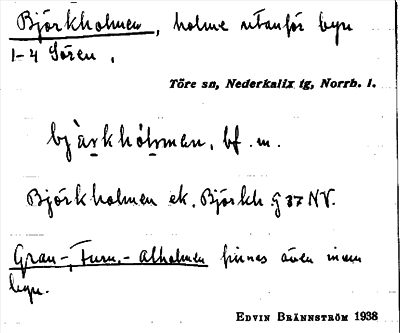 Björkholmen, holme utanför byn
1-4 Sören.
Töre sn, Nederkalix tg, Norrb. l.
bjàrkhólmen, bf. m.
Björkholmen ek. Björkh. G 37 NV.
Gran-, Furu-, alholmen finnes även inom
byn.
EDVIN BRÄNNSTRÖM 1938